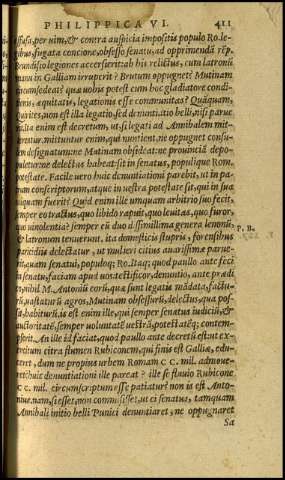 PHILIPPICA VI. 411
effusa, per uim, & contra auspicia impositis populo Ro. le-
gibus, fugata concione, obsesso senatu, ad opprimendã rēp.
Brundisio legiones accersierit: ab his relictus, cum latronũ
manu in Galliam irruperit? Brutum oppugnet? Mutinam
circumsedeat? quæ uobis potest cum hoc gladiatore condi-
tionis, æquitatis, legationis esse communitas? Quãquam,
Quirites, non est illa legatio, sed denuntiatio belli, nisi parue-
rit. ita enim est decretum, ut si legati ad Annibalem mit-
terentur. mittuntur enim, qui nuntient, ne oppugnet consu-
lem designatum: ne Mutinam obsideat: ne prouinciã depo-
puletur: ne delectus habeat: sit in senatus, populique Rom.
potestate. Facile uero huic denuntiationi parebit, ut in pa-
trum conscriptorum, atque in uestra potestate sit, qui in sua
nunquam fuerit? Quid enim ille umquam arbitrio suo fecit,
semper eo tractus, quo libido rapuit, quo leuitas, quo furor,
quo uinolentia? semper eũ duo dissimillima genera lenonũ,
& latronum tenuerunt. ita domesticis stupris, forensibus
parricidiis delectatur, ut mulieri citius auarissimæ parue-
P. B.
rit, quam senatui, populoq; Ro. Itaq; quod paullo ante feci
in senatu, faciam apud uos. testificor, denuntio, ante prædi-
co, nihil M. Antoniũ eorũ, quæ sunt legatis mãdata, factu-
rũ, uastaturũ agros, Mutinam obsessurũ, delectus, qua pos-
sit, habiturũ. is est enim ille, qui semper senatus iudiciũ, &
auctoritatē, semper uoluntatē uestrã, potestatēq; contem-
pserit. An ille id faciat, quod paullo ante decretũ est, ut ex-
ercitum citra flumen Rubiconem, qui finis est Galliæ, edu-
ceret, dum ne propius urbem Romam CC mil. admoue-
ret? huic denuntiationi ille pareat? ille se fluuio Rubicone
CC mil. circumscriptum esse patiatur? non is est Anto-
nius. nam, si esset, non commisisset, ut ei senatus, tamquam
Annibali initio belli Punici denuntiaret, ne oppugnaret
Sa